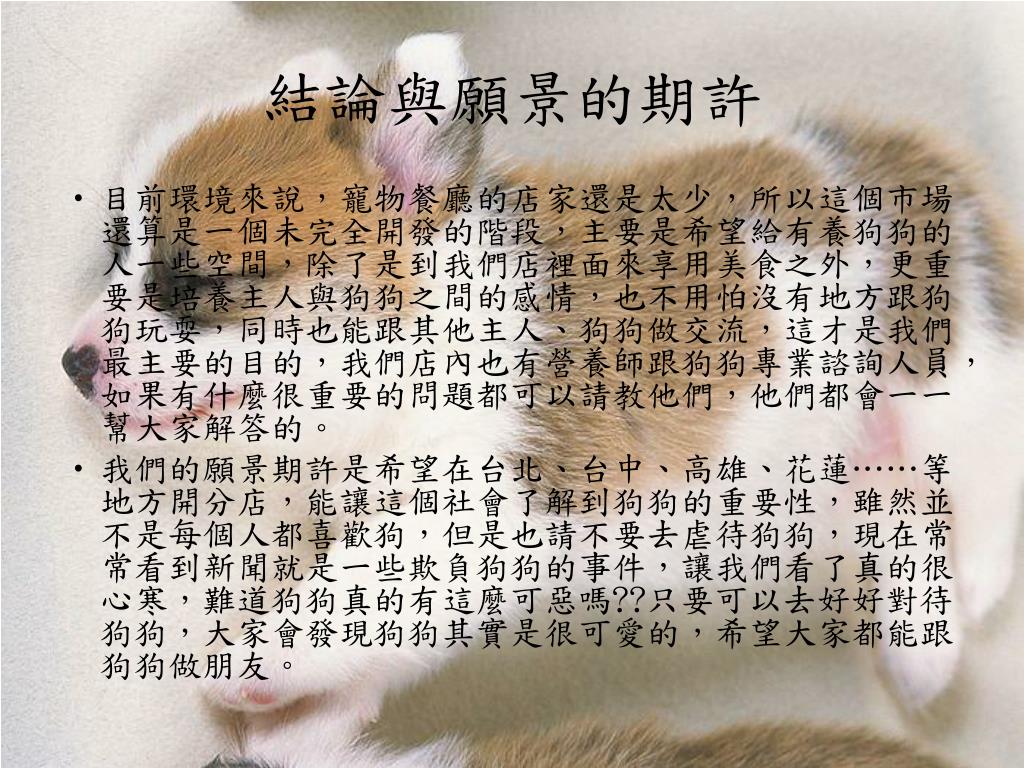 結論與願景的期許
• 目前環境來說，寵物餐廳的店家還是太少，所以這個市場
還算是一個未完全開發的階段，主要是希望給有養狗狗的
人一些空間，除了是到我們店裡面來享用美食之外，更重
要是培養主人與狗狗之間的感情，也不用怕沒有地方跟狗
狗玩耍，同時也能跟其他主人、狗狗做交流，這才是我們
最主要的目的，我們店內也有營養師跟狗狗專業諮詢人員，
如果有什麼很重要的問題都可以請教他們，他們都會一一
幫大家解答的。
• 我們的願景期許是希望在台北、台中、高雄、花蓮……等
地方開分店，能讓這個社會了解到狗狗的重要性，雖然並
不是每個人都喜歡狗，但是也請不要去虐待狗狗，現在常
常看到新聞就是一些欺負狗狗的事件，讓我們看了真的很
心寒，難道狗狗真的有這麼可惡嗎??只要可以去好好對待
狗狗，大家會發現狗狗其實是很可愛的，希望大家都能跟
狗狗做朋友。